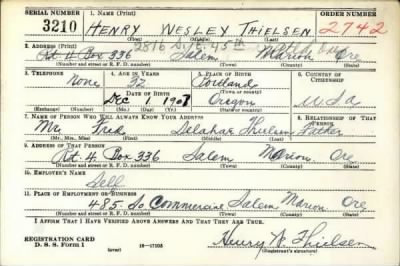 SERIAL NUMBER 1. NAME (Print) ORDER NUMBER
3210 HENRY WESLEY THIELSEN 2742
(First) (Middle) (Last)
2. ADDRESS (Print) 2816 43rd
Rt 4 Box 336 Salem Marion Ore
(Number and street or R. F. D. number) (Town) (County) (State)
3. TELEPHONE 4. AGE IN YEARS 5. PLACE OF BIRTH 6. COUNTRY OF CITIZENSHIP
None 32 Portland
DATE OF BIRTH (Town or county)
Dec 1907 Oregon U S A
(Exchange) (Number) (Mo.) (Day) (Yr.) (State or country)
7. NAME OF PERSON WHO WILL ALWAYS KNOW YOUR ADDRESS 8. RELATIONSHIP OF THAT PERSON
Mr. Fred Thielsen Father
(Mr., Mrs., Miss) (First) (Middle) (Last)
9. ADDRESS OF THAT PERSON
Rt. 4 Box 336 Salem Marion Ore
(Number and street or R. F. D. number) (Town) (County) (State)
10. EMPLOYER'S NAME
Self
11. PLACE OF EMPLOYMENT OR BUSINESS
485 So Commercial Salem Marion Ore
(Number and street or R. F. D. number) (Town) (County) (State)
I AFFIRM THAT I HAVE VERIFIED ABOVE ANSWERS AND THAT THEY ARE TRUE.
REGISTRATION CARD
D. S. S. Form 1 (over) 16—17105 Henry W. Thielsen
(Registrant's signature)